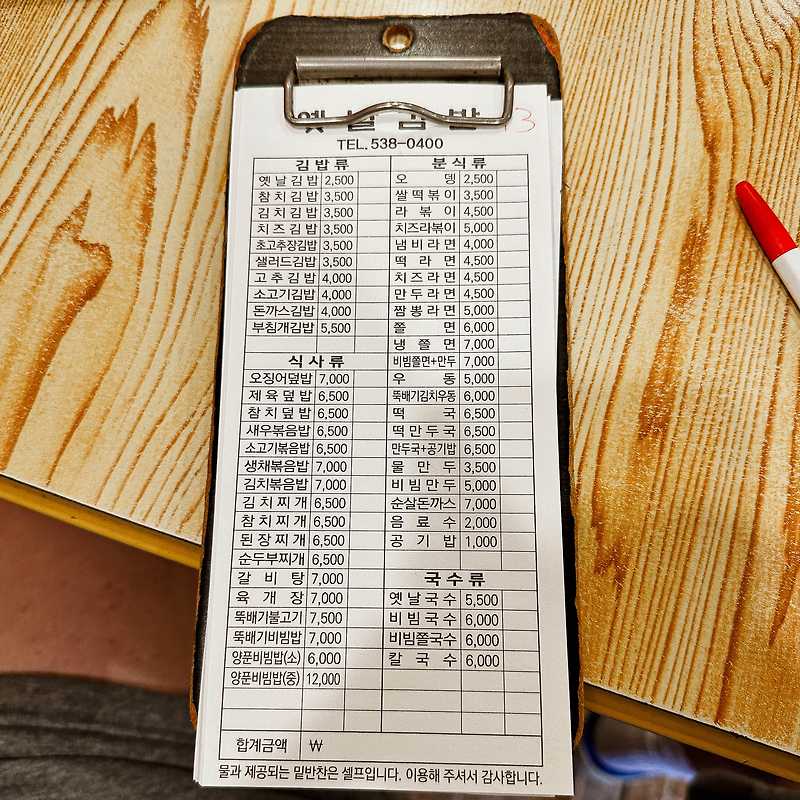 옛날김밥 13
TEL. 538-0400
김밥류
옛날김밥 2,500
참치김밥 3,500
김치김밥 3,500
치즈김밥 3,500
초고추장김밥 3,500
샐러드김밥 3,500
고추김밥 4,000
소고기김밥 4,000
돈까스김밥 4,000
부침개김밥 5,500
식사류
오징어덮밥 7,000
제육덮밥 6,500
참치덮밥 6,500
새우볶음밥 6,500
소고기볶음밥 6,500
생채볶음밥 7,000
김치볶음밥 7,000
김치찌개 6,500
참치찌개 6,500
된장찌개 6,500
순두부찌개 6,500
갈비탕 7,000
육개장 7,000
뚝배기불고기 7,500
뚝배기비빔밥 7,000
양푼비빔밥(소) 6,000
양푼비빔밥(중) 12,000
분식류
오뎅 2,500
쌀떡볶이 3,500
라볶이 4,500
치즈라볶이 5,000
냄비라면 4,000
떡라면 4,500
치즈라면 4,500
만두라면 4,500
짬뽕라면 5,000
쫄면 6,000
냉쫄면 7,000
비빔쫄면+만두 7,000
우동 5,000
뚝배기김치우동 6,000
떡국 6,500
떡만두국 6,500
만두국+공기밥 6,500
물만두 3,500
비빔만두 5,000
순살돈까스 7,000
음료수 2,000
공기밥 1,000
국수류
옛날국수 5,500
비빔국수 6,000
비빔쫄국수 6,000
칼국수 6,000
합계금액 ₩
물과 제공되는 밑반찬은 셀프입니다. 이용해 주셔서 감사합니다.